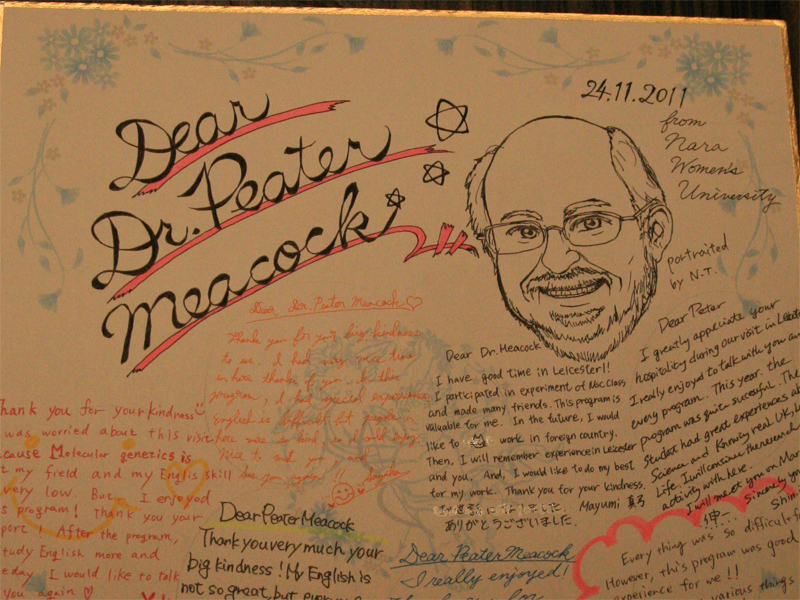 Dear
Dr. Peater
Meacock
24.11.2011
from
Nara
Women's
University
portraited
by N.T.
Dear Dr. Peator Meacock♡
Thank you for your big kindness
to us. I had very nice time
in here thanks of you. In this
program, I had special experience
English is difficult but people in
here were so kind, so I could enjoy.
Nice to meet you and
See you again!!
Dear Dr. Meacock
I have good time in Leicester!!
I participated in experiment of Msc. Class
and made many friends. This program is
valuable for me. In the future, I would
like to work in foreign country.
Then, I will remember experience in Leicester
and you. And, I would like to do my best
for my work. Thank you for your kindness.
ありがとうございました。
Mayumi
Dear Peter
I greatly appreciate your
hospitality during our visit in
I really enjoyed to talk with you
every program. This year, the
program was quite sucessful. The
Studet had great experiences
Science and Knowing real UK
Life. I will continue the
activity with here.
I will meet you on
Sincerely
hank you for your kindness
was worried about this visit
cause Molecular genetics is
t my field and my Englis skill
very low. But I enjoyed
s program! Thank you your
port! After the program,
tudy English more and
eday I would like to talk
you again ♡
Dear Peater Meacock
Thank you very much your
big kindness! My English is
not so great, but
Dear Peater Meacock
I really enjoyed!
Every thing was so difficult
However, this program was good
experience for me!!
various things